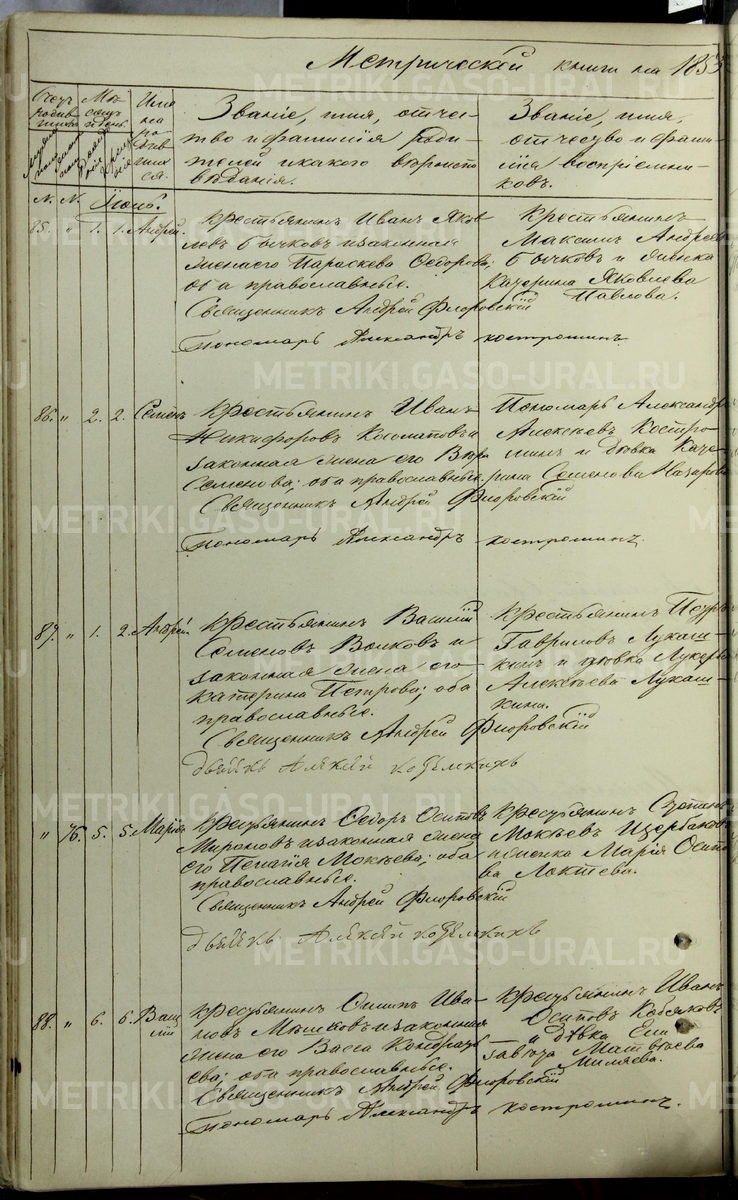 Метрической книги на 1853
Счетъ родив-
шихся
Мѣ-
сяцъ
Имя
на
ро
див
ших
ся.
Званіе, имя, отче-
ство и фамилія роди-
телей и какого вѣроиспо-
вѣданія.
Званіе, имя,
отчество и фами-
лія воспріемни-
ковъ.
№. №. Іюнь.
85. " 1. 1. Андрей.
Крестьянинъ Иванъ Яков
левъ Бычковъ и законная
жена его Параскева Ѳедорова;
оба православные.
Священникъ Андрей Флоровскій
Пономарь Александръ Костроминъ.
Крестьянинъ
Максимъ Андреевъ
Бычковъ и дѣвка
Катерина Яковлева
Павлова.
86. " 2. 2. Семенъ
Крестьянинъ Иванъ
Никифоровъ и
законная жена его Вѣра
Семенова; оба православные.
Священникъ Андрей Флоровскій
Пономарь Александръ Костроминъ.
Пономарь Александръ
Алексѣевъ Костро-
минъ и дѣвка Кате-
рина Семенова Назарова
87. " 1. 2. Андрей.
Крестьянинъ Василій
Семеновъ Волковъ и
законная жена его
Катерина Петрова; оба
православные.
Священникъ Андрей Флоровскій
Крестьянинъ Петръ
Гавриловъ Лукаш-
кинъ и дѣвка Лукерья
Алексѣева Лукаш-
кина.
" 76. 5. 5. Марія
Крестьянинъ Ѳедоръ Осиповъ
Мироновъ и законная жена
его Пелагія Мокѣева; оба
православные.
Священникъ Андрей Флоровскій
Крестьянинъ Степанъ
Мокѣевъ Щербаковъ
и женка Марія Осипо
ва Локтева.
88. " 6. 6. Васи
лій
Крестьянинъ Осипъ Ива-
новъ и законная
жена его Васса Кондрать
ева; оба православные.
Священникъ Андрей Флоровскій
Пономарь Александръ Костроминъ.
Крестьянинъ Иванъ
Осиповъ
и дѣвка Ели
завета Матвѣева
Миляева.
METRIKI.GASO-URAL.RU